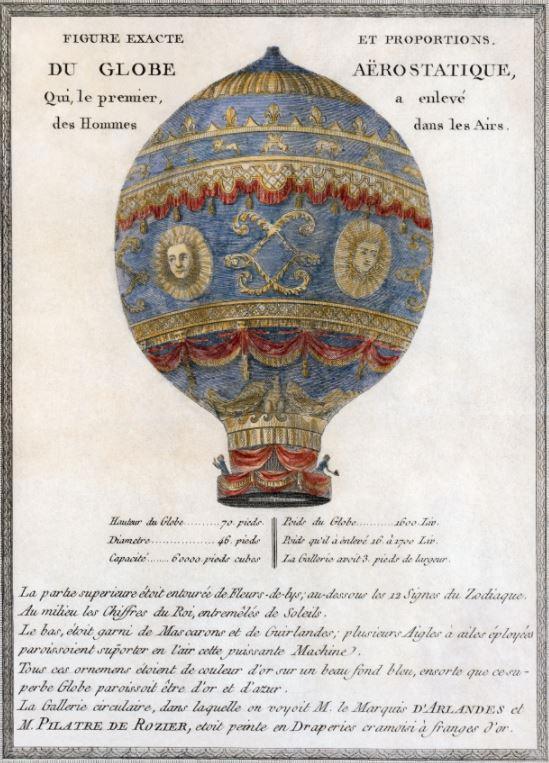 FIGURE EXACTE ET PROPORTIONS.
DU GLOBE AËROSTATIQUE,
Qui, le premier, a enlevé
des Hommes dans les Airs.
Hauteur du Globe..........70. pieds.
Diametre....................46. pieds
Capacité.......60000 pieds cubes
Poids du Globe...........1600 Liv.
Poids qu'il à énlevé 16 à 1700 Liv.
La Gallerie avoit 3. pieds de largeur.
La partie superieure étoit entourée de Fleurs-de-lys; au-dessous les 12 Signes du Zodiaque.
Au milieu les Chiffres du Roi, entremêlés de Soleils.
Le bas, étoit garni de Mascarons et de Guirlandes; plusieurs Aigles à ailes éployées
paroissoient suporter en l'air cette puissante Machine).
Tous ces ornemens étoient de couleur d'or sur un beau fond bleu, ensorte que ce su-
perbe Globe paroissoit être d'or et d'azur.
La Gallerie circulaire, dans laquelle on voyoit M. le Marquis D'ARLANDES et
M. PILATRE DE ROZIER, etoit peinte en Draperies cramoisi à franges d'or.